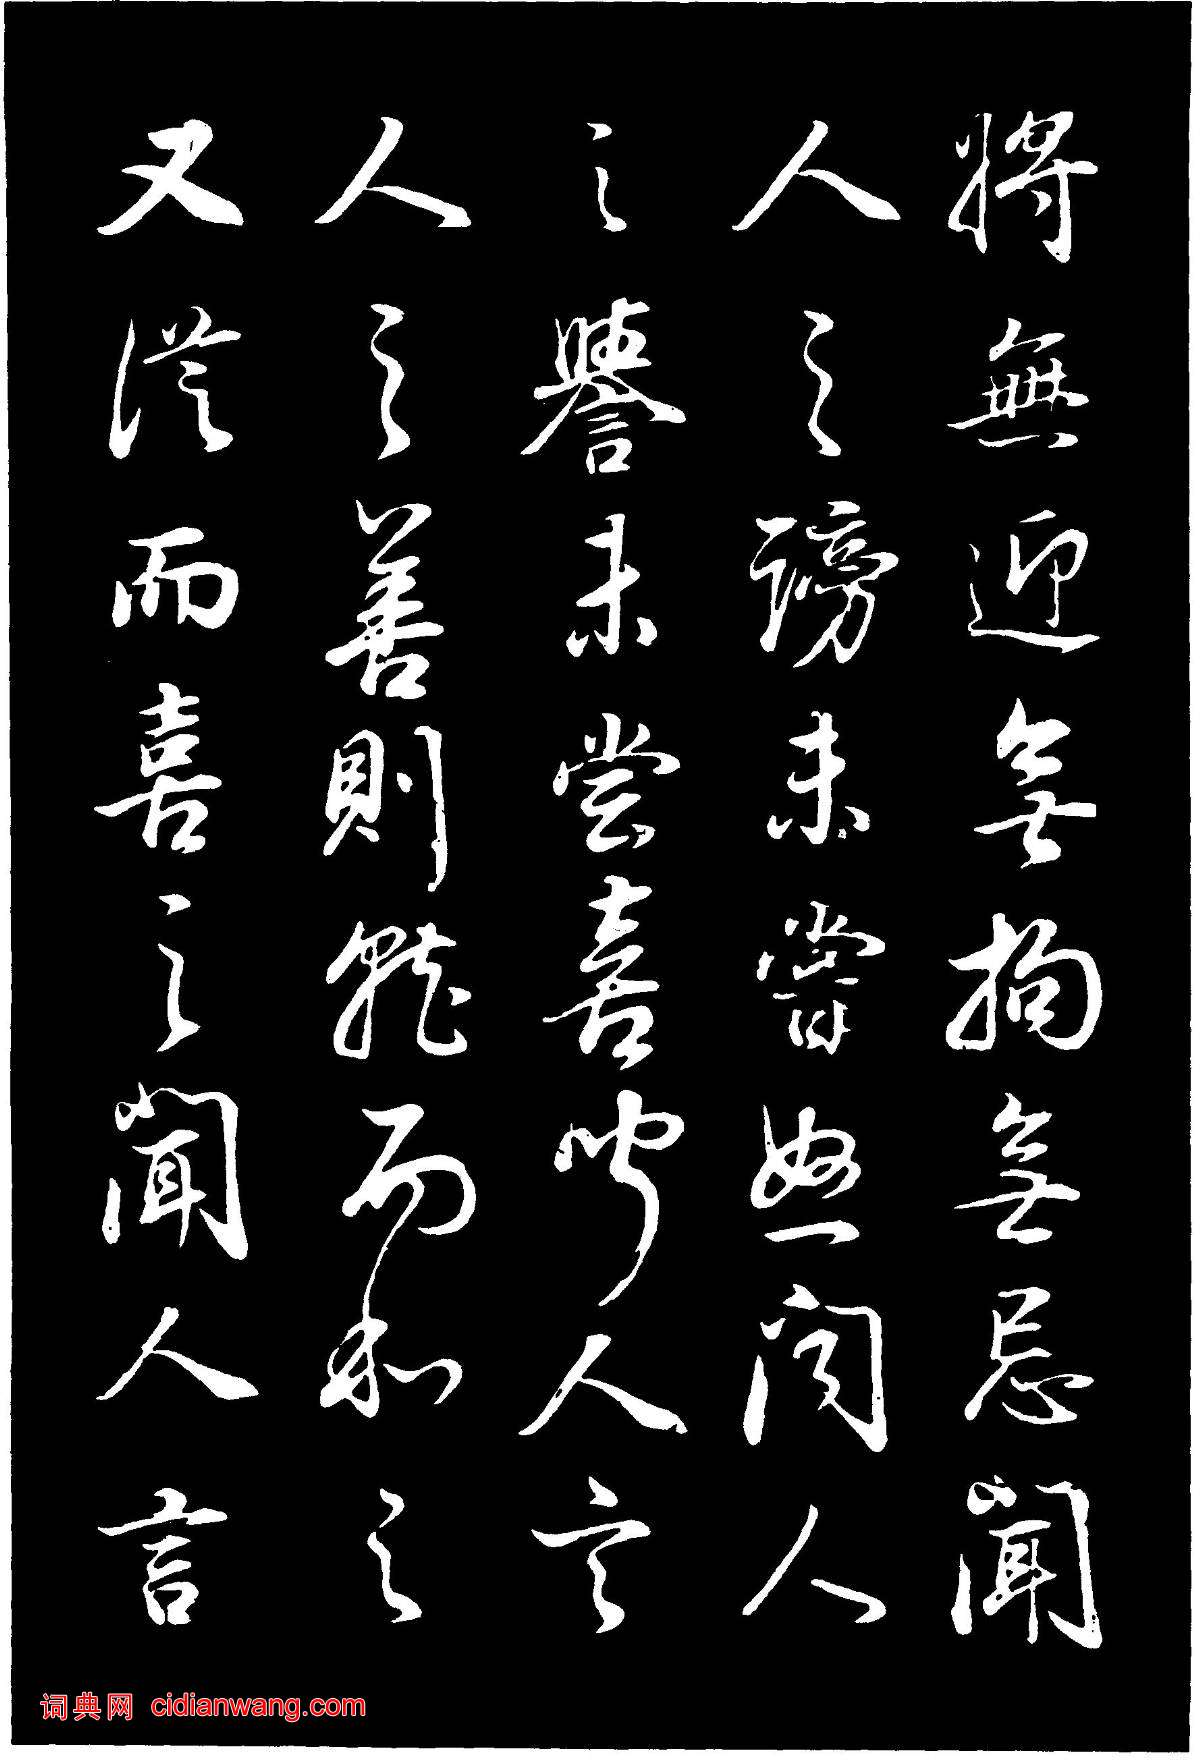 將無迎無拘無忌聞
人之謗未嘗怒聞人
之譽未嘗喜聞人言
人之善則就而和之
又從而喜之聞人言
词典网 cidianwang.com